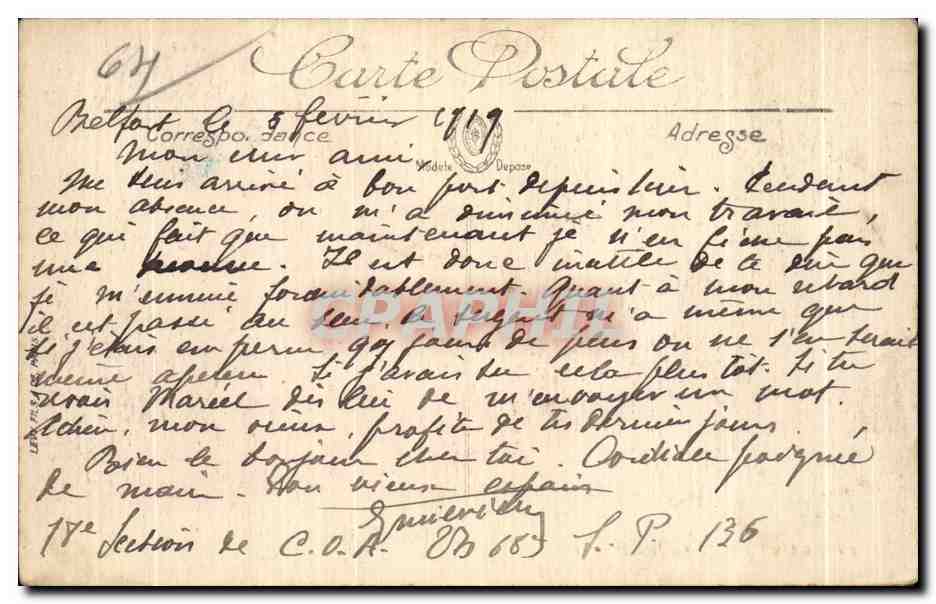 64
Carte Postale
Belfort le 5 février 1919
Correspondance
Adresse
Mon cher ami
Modèle Déposé
Me suis arrivé à bon port depuis hier. Pendant
mon absence, on m'a diminué mon travail,
ce qui fait que maintenant je n'en fiche pas
une. Il est donc inutile de te dire que
je m'ennuie formidablement. Quant à mon retard
il est passé au le sergent m'a même que
si j'étais en perm jours de plus on ne s'en serait
même aperçu. Si j'avais su cela plus tôt. Si tu
vois Marcel dis lui de m'envoyer un mot.
mon vieux, profite de tes derniers jours.
Bien le bonjour chez toi. Cordiale poignée
de main. Ton vieux copain
18e Section de C.O.A. S. P. 136
CPAPHIL